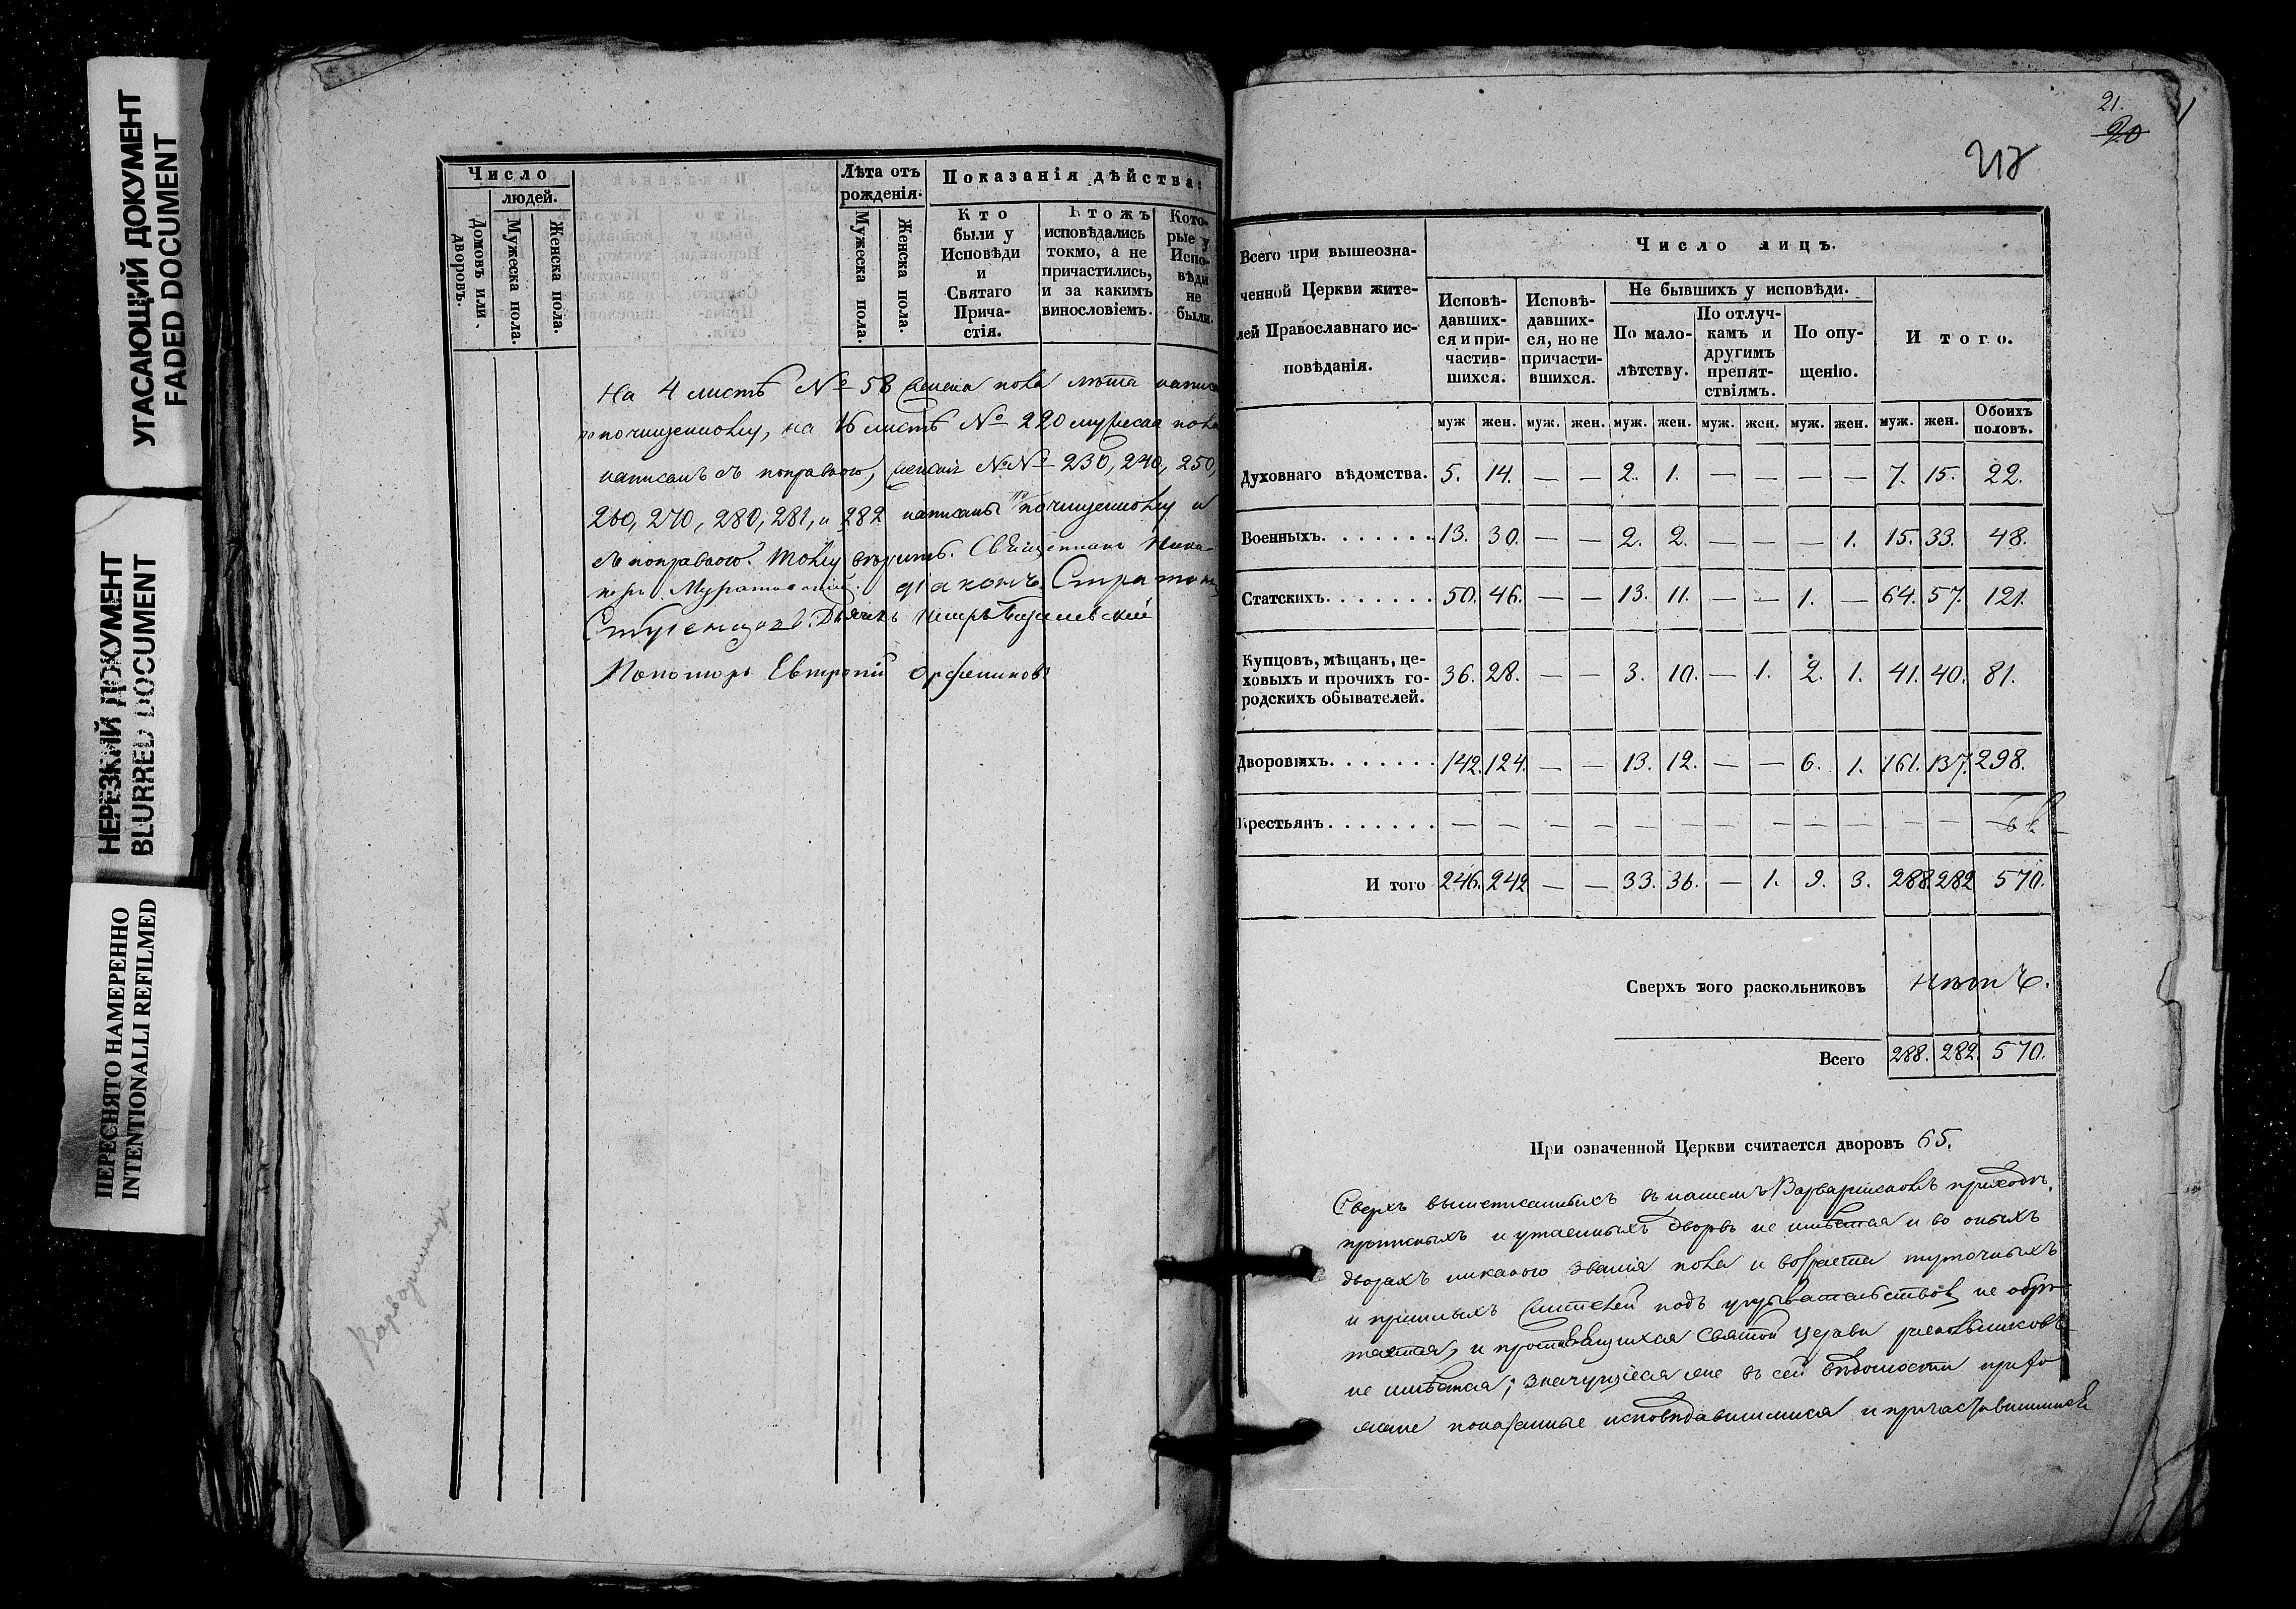 УГАСАЮЩИЙ ДОКУМЕНТ
FADED DOCUMENT
НЕРЕЗКИЙ ДОКУМЕНТ
BLURRED DOCUMENT
ПЕРЕСНЯТО НАМЕРЕННО
INTENTIONALLI REFILMED
Число
людей.
Домовъ или дворовъ.
Мужеска пола.
Женска пола.
Лѣта отъ
рожденія.
Мужеска пола.
Женска пола.
Показанія дѣйства:
Кто
были у
Исповѣди
и
Святаго
Прича-
стія.
Ктожъ
исповѣдались
токмо, а не
причастились,
и за какимъ
винословіемъ.
Кото-
рые у
Испо-
вѣди
не
были.
На 4 листѣ № 58 женска пола лѣта
по почищенному, на 16 листѣ № 220 мужеска пола
написанъ съ поправкою, женска №№ 230, 240, 250,
260, 270, 280, 281, и 282 написаны по почищенному и
съ поправкою. Тому вѣрить. Священникъ
діаконъ
Дьячекъ
Пономарь Евтропій
21.
20
Всего при вышеозна-
ченной Церкви жите-
лей Православнаго ис-
повѣданія.
Число лицъ.
Исповѣ-
давших-
ся и при-
частив-
шихся.
Исповѣ-
давших-
ся, но не
причасти-
вшихся.
Не бывшихъ у исповѣди.
По мало-
лѣтству.
По отлуч-
камъ и
другимъ
препят-
ствіямъ.
По опу-
щенію.
И того.
муж. жен. муж. жен. муж. жен. муж. жен. муж. жен. муж. жен. Обоихъ половъ.
Духовнаго вѣдомства. 5. 14. — — 2. 1. — — — — 7. 15. 22.
Военныхъ. 13. 30. — — 2. 2. — — — 1. 15. 33. 48.
Статскихъ. 50. 46. — — 13. 11. — — 1. — 64. 57. 121.
Купцовъ, мѣщанъ, це-
ховыхъ и прочихъ го-
родскихъ обывателей. 36. 28. — — 3. 10. — 1. 2. 1. 41. 40. 81.
Дворовыхъ. 142. 124. — — 13. 12. — — 6. 1. 161. 137. 298.
Крестьянъ. — — — — — — — — — — — — —
И того 246. 242 — — 33. 36. — 1. 9. 3. 288. 282 570.
Сверхъ того раскольниковъ нѣтъ.
Всего 288. 282. 570.
При означенной Церкви считается дворовъ 65.
Сверхъ вышеписанныхъ въ нашемъ Варваринскомъ приходѣ,
прописныхъ и утаенныхъ дворовъ не имѣется и во оныхъ
дворахъ никакого званія пола и возраста туточныхъ
и пришлыхъ жителей подъ укрывательствомъ не обрѣ-
тается, и противящихся Святой Церкви раскольниковъ
не имѣется; значущіеся же въ сей вѣдомости прихо
жане показанные исповѣдавшимися и причастившимися